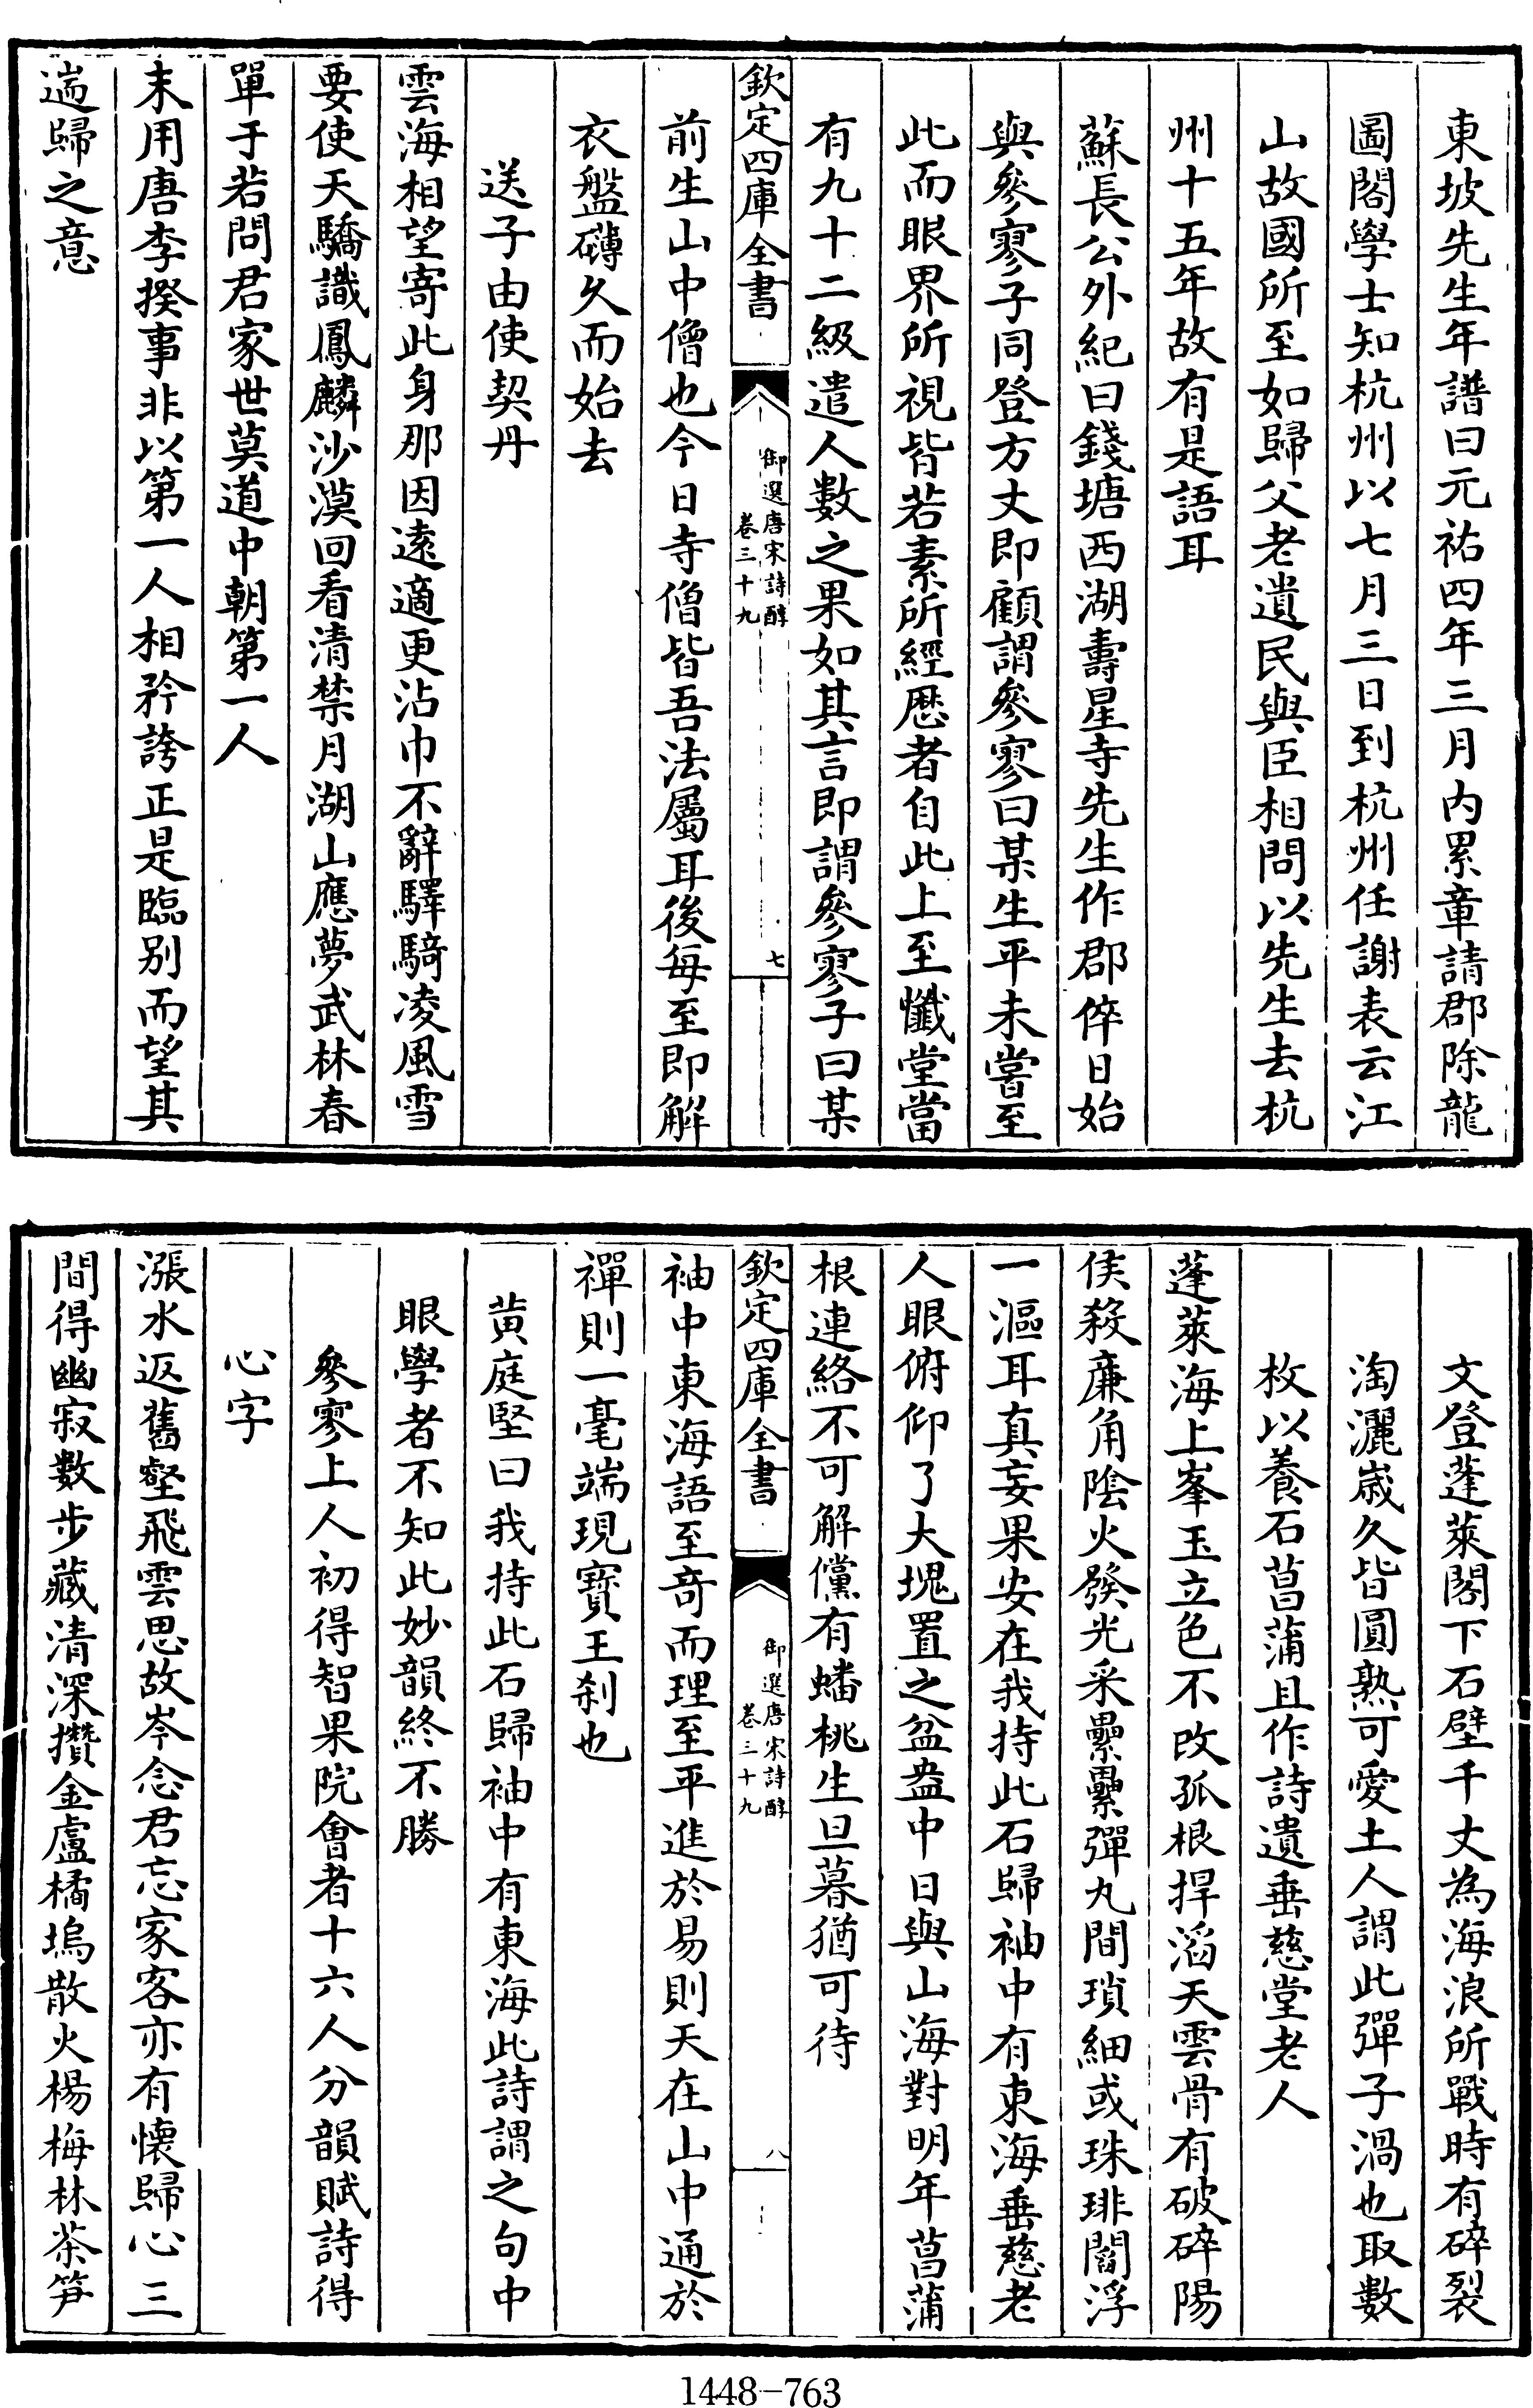 東坡先生年譜曰元祐四年三月內累章請郡除龍
圖閣學士知杭州以七月三日到杭州任謝表云江
山故國所至如歸父老遺民與臣相問以先生去杭
州十五年故有是語耳
蘇長公外紀曰錢塘西湖壽星寺先生作郡倅日始
與參寥子同登方丈即顧謂參寥曰某生平未嘗至
此而眼界所視皆若素所經歷者自此上至懺堂當
有九十二級遣人數之果如其言即謂參寥子曰某
欽定四庫全書
御選唐宋詩醇
卷三十九
七
前生山中僧也今日寺僧皆吾法屬耳後每至即解
衣盤礴久而始去
送子由使契丹
雲海相望寄此身那因遠適更沾巾不辭驛騎凌風雪
要使天驕識鳳麟沙漠回看清禁月湖山應夢武林春
單于若問君家世莫道中朝第一人
末用唐李揆事非以第一人相矜誇正是臨别而望其
遄歸之意
文登蓬萊閣下石壁千丈為海浪所戰時有碎裂
淘灑歲久皆圓熟可愛土人謂此彈子渦也取數
枚以養石菖蒲且作詩遺垂慈堂老人
蓬萊海上峯玉立色不改孤根捍滔天雲骨有破碎陽
侯殺廉角陰火發光采纍纍彈丸間瑣細或珠琲閻浮
一漚耳真妄果安在我持此石歸袖中有東海垂慈老
人眼俯仰了大塊置之盆盎中日與山海對明年菖蒲
根連絡不可解儻有蟠桃生旦暮猶可待
欽定四庫全書
御選唐宋詩醇
卷三十九
八
袖中東海語至奇而理至平進於易則天在山中通於
禪則一毫端現寶王刹也
黄庭堅曰我持此石歸袖中有東海此詩謂之句中
眼學者不知此妙韻終不勝
參寥上人初得智果院會者十六人分韻賦詩得
心字
漲水返舊壑飛雲思故岑念君忘家客亦有懷歸心三
間得幽寂數步藏清深攢金盧橘塢散火楊梅林茶笋
1448-763